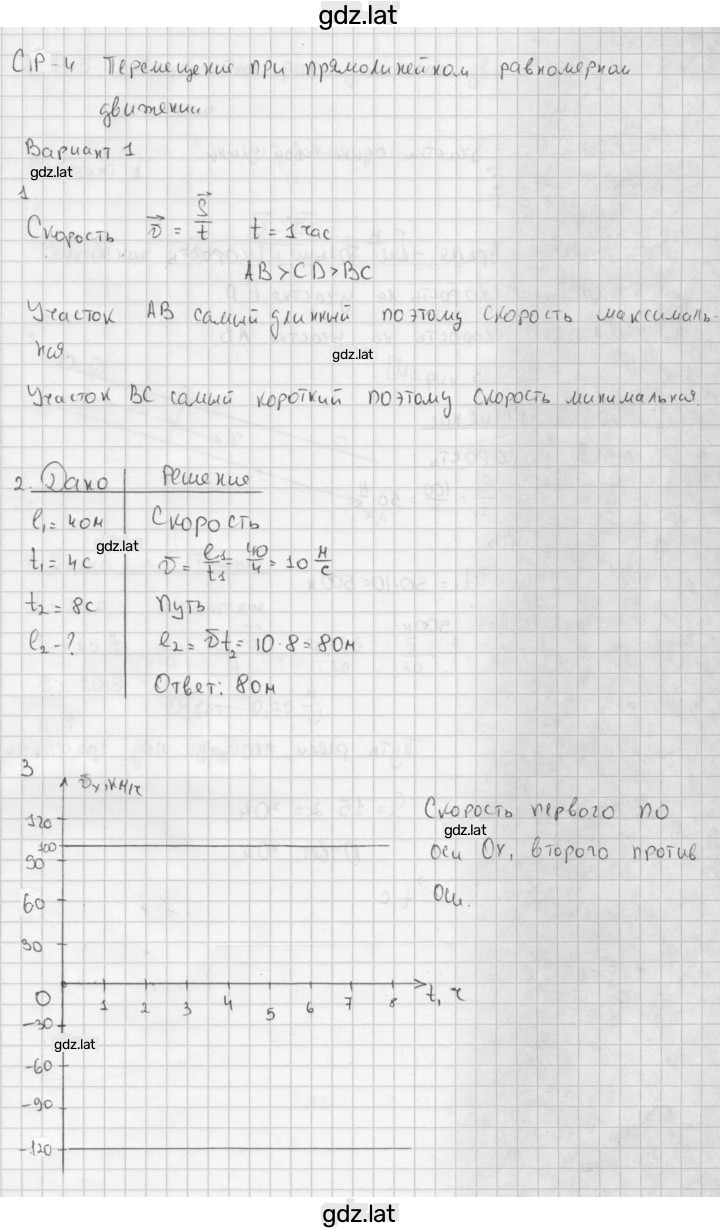 gdz.lat
СР-4 Перемещение при прямолинейном равномерном
движении
Вариант 1
gdz.lat
1
Скорость v⃗ = S⃗/t t = 1 час
AB > CD > BC
Участок AB самый длинный поэтому скорость максималь-
ная
gdz.lat
Участок BC самый короткий поэтому скорость минимальная.
2. Дано Решение
l₁ = 40м Скорость
gdz.lat
t₁ = 4с v = l₁/t₁ = 40/4 = 10 м/с
t₂ = 8с Путь
l₂ - ? l₂ = vt₂ = 10 · 8 = 80м
Ответ: 80м
3
vₓ, км/ч
120
100
90
60
30
0 1 2 3 4 5 6 7 8 t, ч
-30
gdz.lat
-60
-90
-120
Скорость первого по
gdz.lat
оси Ox, второго против
Оси.
gdz.lat